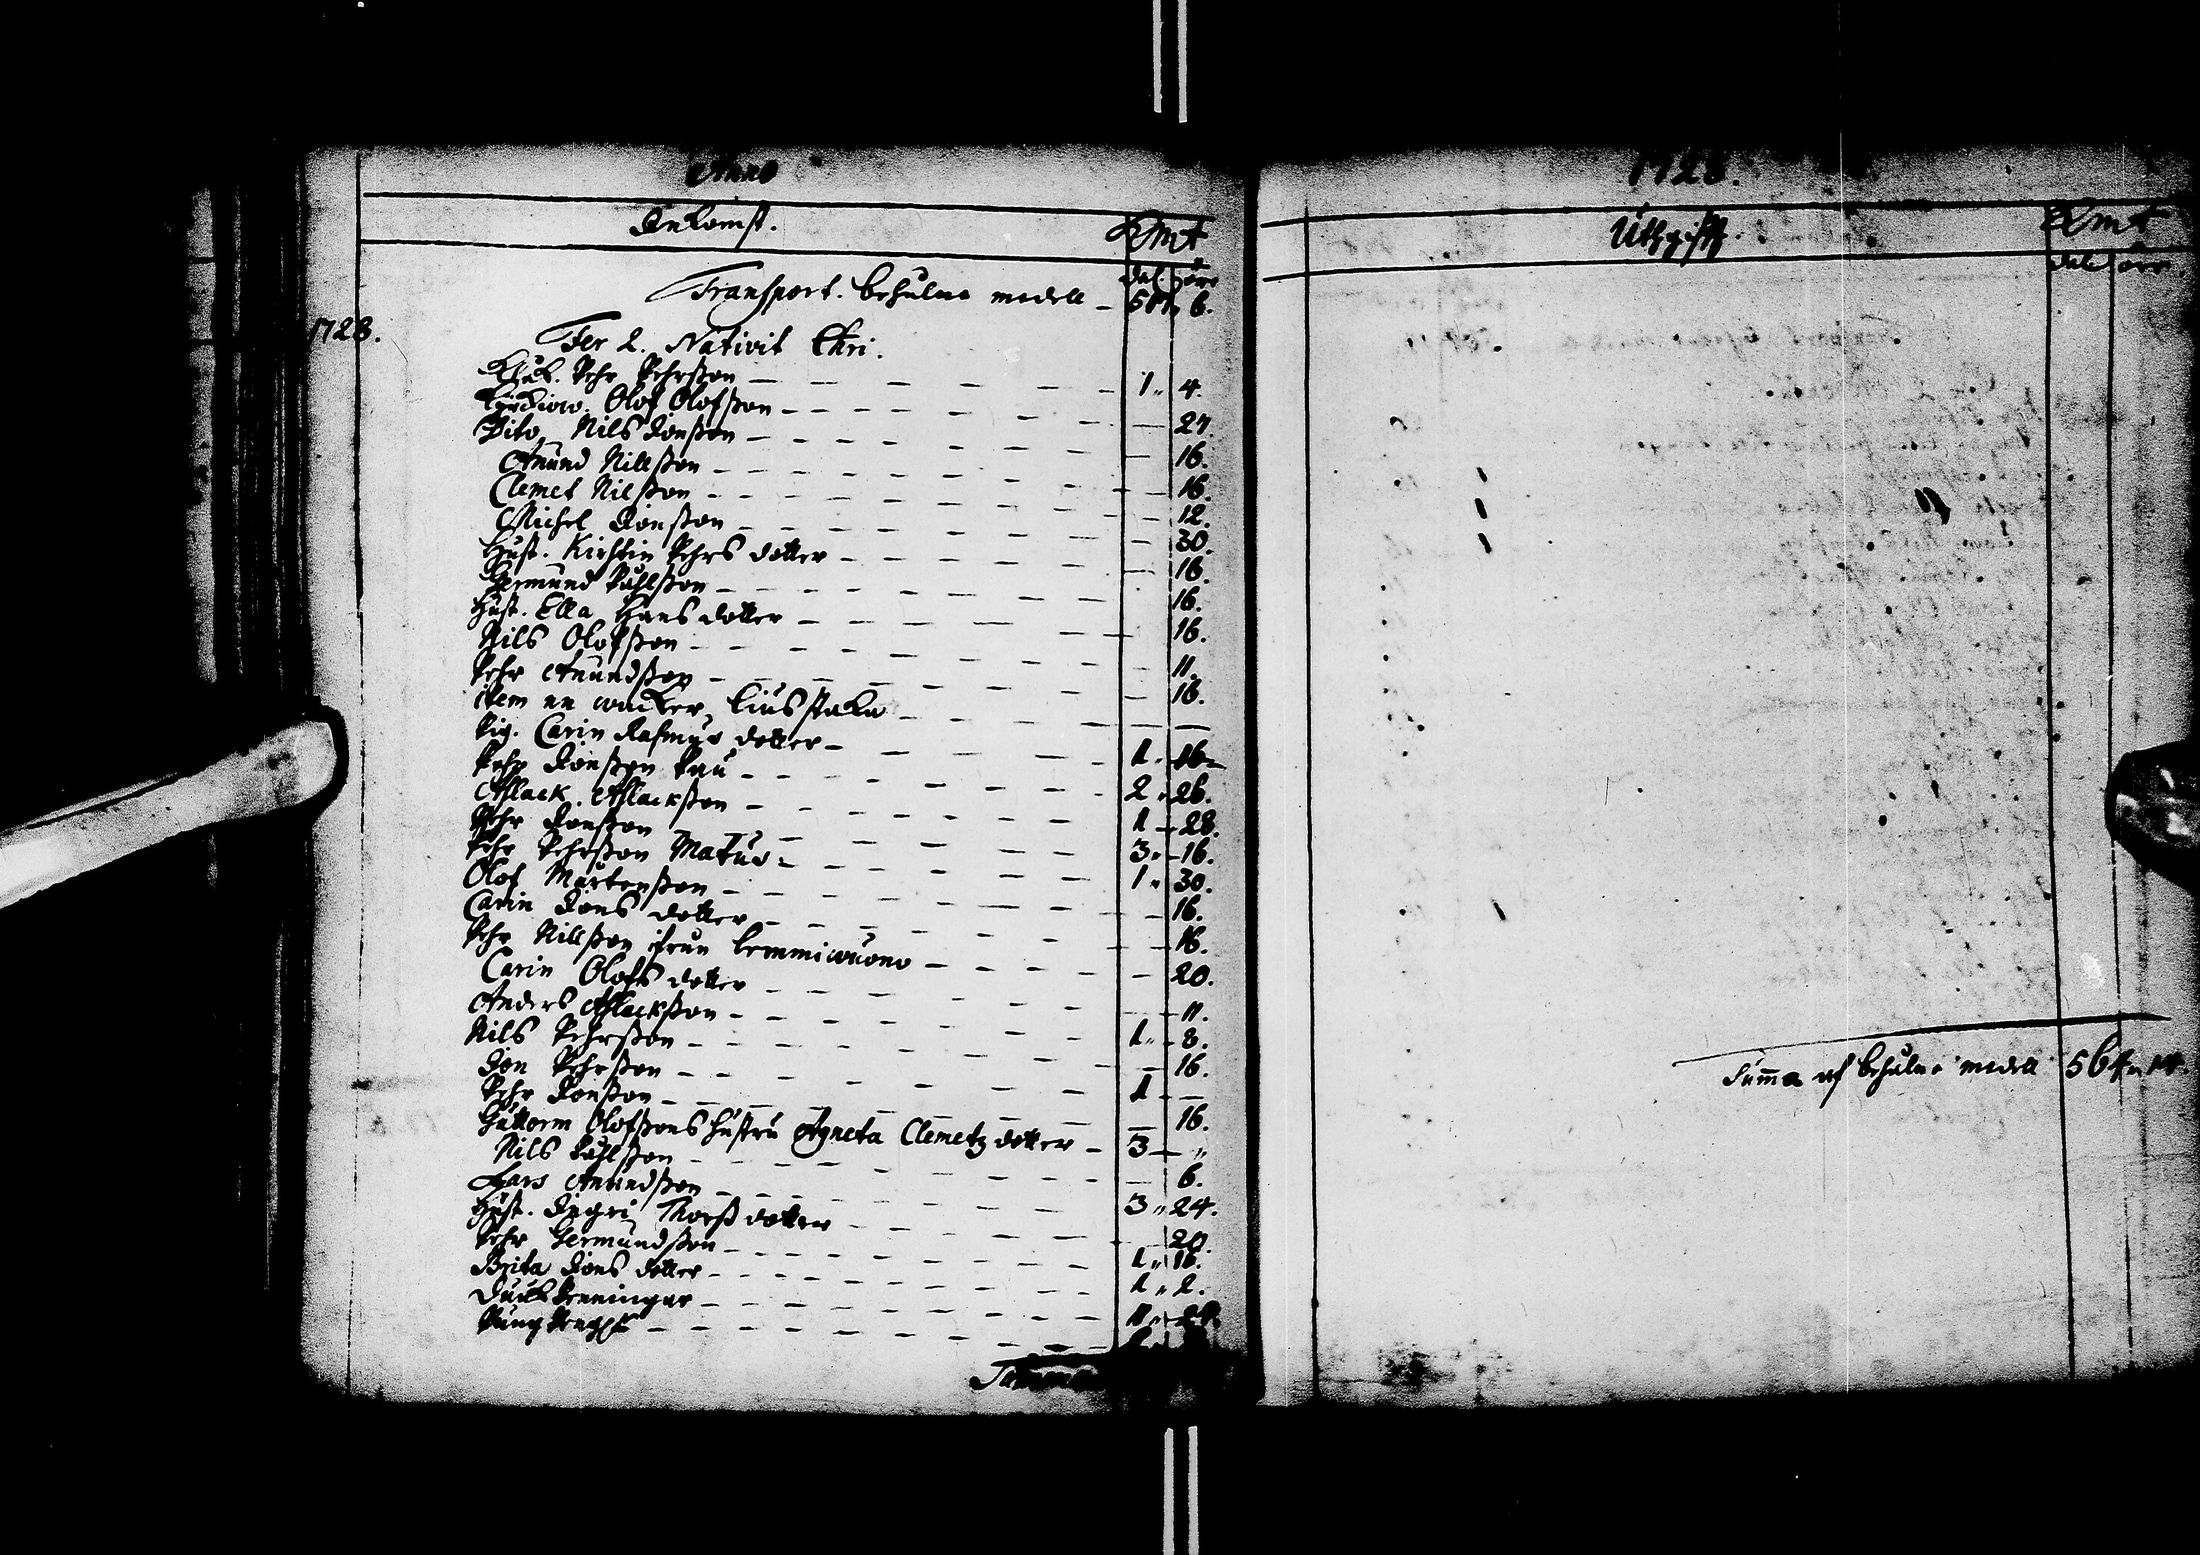 Anno
Inkomst.
Kmt
dal öre
Transport. behulne medell - 517 6.
1728.
Fer 2. Nativit Chri.
Pehr Pehrsson 1 " 4.
Olof Olofsson 24.
Dito Nils Jonsson 16.
Amund Nillsson 16.
Clemet Nilsson 12.
Michel Jonsson 30.
Hust. Kirstin Pehrs dotter 16.
Germund Påhlsson 16.
Hust. Ella Hans dotter 16.
Nils Olofsson 11.
Pehr Amundsson 16.
item en wacker liusstaka
Pig. Carin Rasmus dotter 1 " 16
Pehr Jonsson 2 " 26.
Aslack Aslacksson 1 28.
Pehr Jonsson 3 " 16.
Pehr Pehrsson Matus 1 " 30.
Olof Mårtensson 16.
Carin Jons dotter 16.
Pehr Nillsson ifrån Lemmiwuono 20.
Carin Olofs dotter 11.
Anders Aslacksson 1 " 8.
Nils Pehrsson 16.
Jon Pehrsson 1
Pehr Jonsson 16.
Guttorm Olofssons hustru Agneta Clemetz dotter - 3 "
Nils Påhlsson 6.
Lars Amundsson 3 " 24.
Hust. Ingri Thorss dotter 20.
Pehr Germundsson 1 " 16.
Brita Jons dotter 1 " 2.
Penningar
Summa
1728.
Uthgifft.
Kmt
dal öre
Summa af behulne medell 564